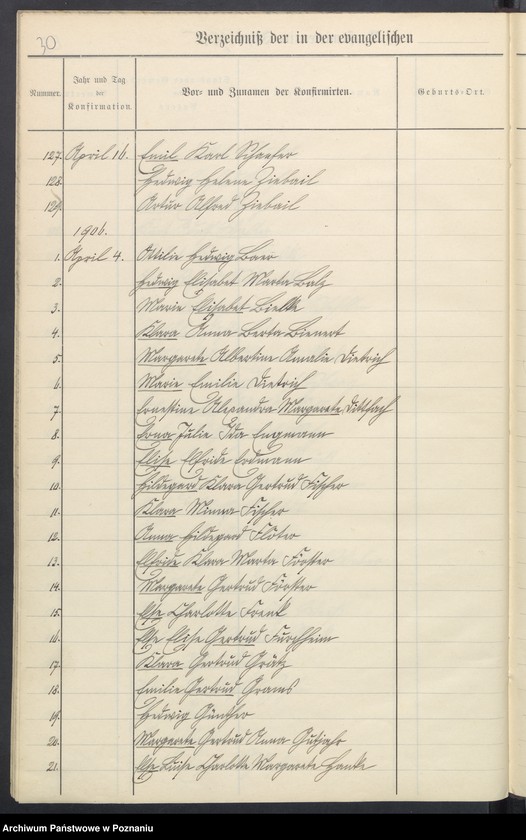 30
Verzeichniß der in der evangelischen
Nummer.
Jahr und Tag
der
Konfirmation.
Vor- und Zunamen der Konfirmirten.
Geburts-Ort.
127. April 16. Emil Karl Schaefer
128. Hedwig Helene Ziebail
129. Artur Alfred Ziebail
1906.
1. April 4. Ottilie Hedwig Baer
2. Hedwig Elisabet Marta Balz
3. Marie Elisabet Bielke
4. Klara Anna Berta Bienert
5. Margarete Albertine Amalie Dietrich
6. Marie Emilie Dietrich
7. Ernestine Alexandra Margarete
8. Julie Ida Engmann
9. Elise Elfride Erdmann
10. Hildegard Klara Gertrud Fischer
11. Klara Minna Fischer
12. Anna Hildegard Flöter
13. Elfride Klara Marta Förster
14. Margarete Gertrud Förster
15. Else Charlotte Frenk
16. Else Elise Gertrud Furchheim
17. Klara Gertrud Grätz
18. Emilie Gertrud Grams
19. Hedwig Günther
20. Margarete Gertrud Anna Gutjahr
21. Else Luise Charlotte Margarete Hanke
Archiwum Państwowe w Poznaniu